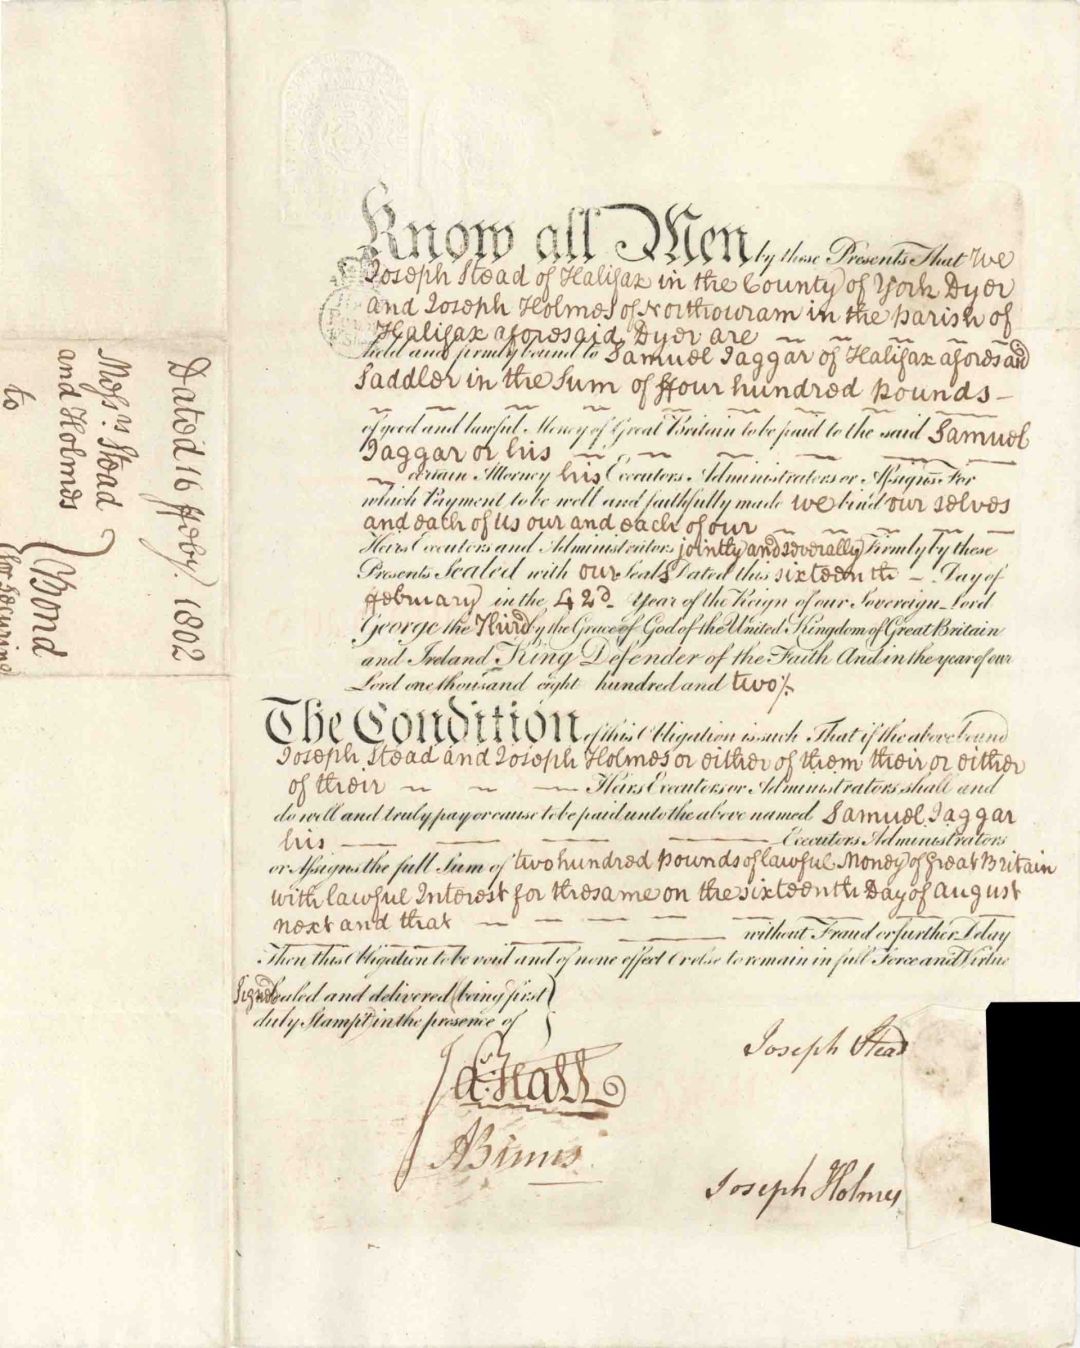 Know all Men by these Presents That We
Joseph Stead of Halifax in the County of York Dyer
and Joseph Holmes of Northowram in the parish of
Halifax aforesaid Dyer are
held and firmly bound to Samuel Jaggar of Halifax aforesaid
Saddler in the Sum of ffour hundred pounds –
of good and lawful Money of Great Britain to be paid to the said Samuel
Jaggar or his
certain Attorney his Executors Administrators or Assigns For
which Payment to be well and faithfully made we bind our selves
and each of us our and each of our
Heirs Executors and Administrators jointly and severally Firmly by these
Presents Sealed with our Seals Dated this sixteenth – Day of
ffebruary in the 42d. Year of the Reign of our Sovereign Lord
George the Third by the Grace of God of the United Kingdom of Great Britain
and Ireland King Defender of the Faith And in the year of our
Lord one thousand eight hundred and two/-
The Condition of this Obligation is such That if the above bound
Joseph Stead and Joseph Holmes or either of them their or either
of their Heirs Executors or Administrators shall and
do well and truly pay or cause to be paid unto the above named Samuel Jaggar
his Executors Administrators
or Assigns the full Sum of two hundred pounds of lawful Money of Great Britain
with lawful Interest for the same on the sixteenth Day of August
next and that without Fraud or further Delay
Then this Obligation to be void and of none effect Or else to remain in full Force and Virtue
Signed Sealed and delivered (being first
duly Stampt) in the presence of
Hall
A Binns
Joseph Stead
Joseph Holmes
Dated 16 ffeby. 1802
Messrs. Stead
and Holmes
to
Bond
for securing